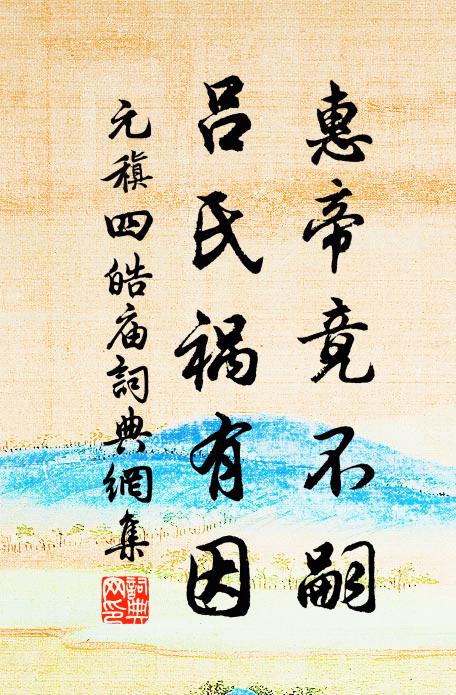 惠帝竟不嗣
吕氏禍有因
元稹四皓庙詞典網集